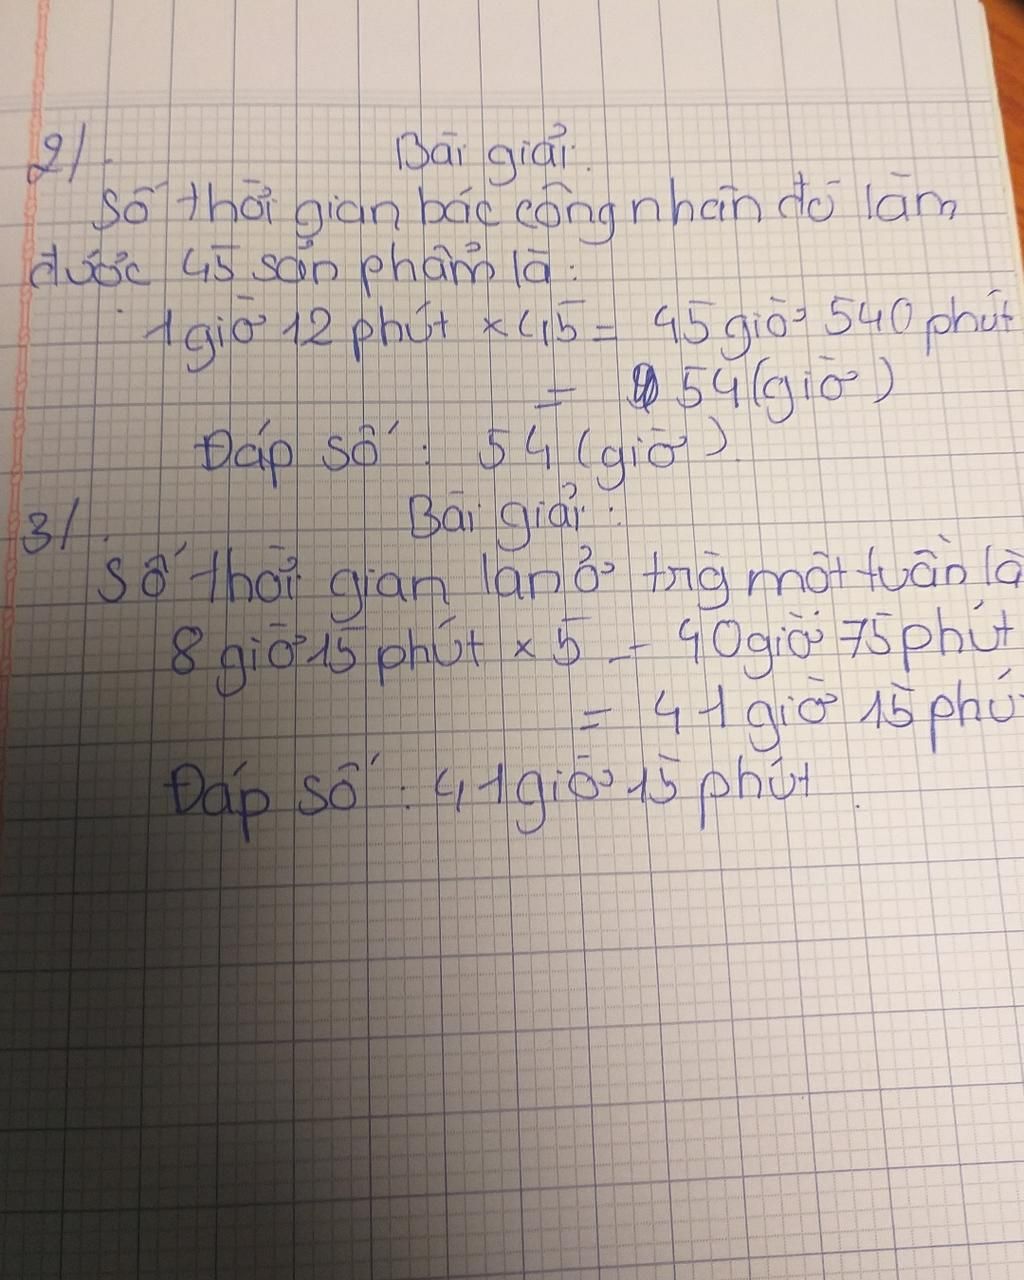 2/. Bài giải:
Số thời gian bác công nhân đó làm
được 45 sản phẩm là:
1 giờ 12 phút × 45 = 45 giờ 540 phút
= 54 (giờ)
Đáp số : 54 (giờ).
3/. Bài giải :
Số thời gian lan ở trg một tuần là
8 giờ 15 phút × 5 = 40 giờ 75 phút
= 41 giờ 15 phú
Đáp số : 41 giờ 15 phút.